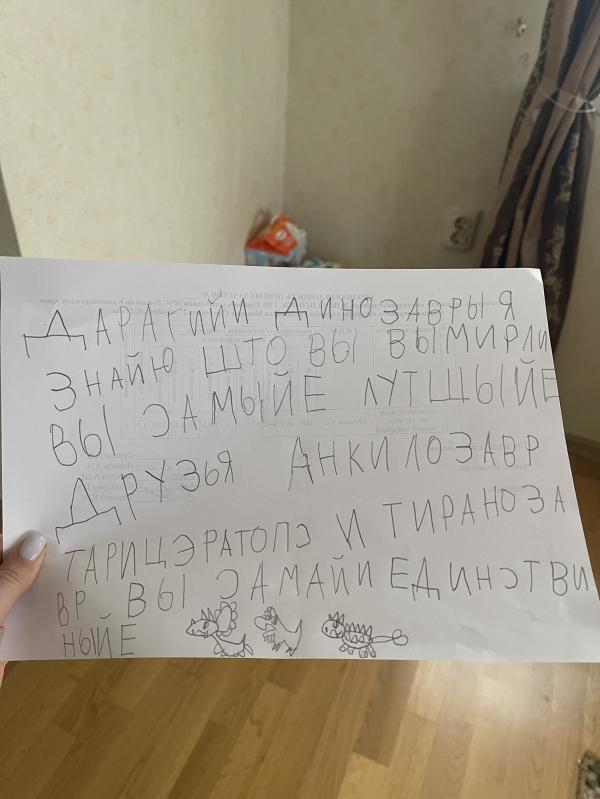 ДАРАГИЙИ ДИНОЗАВРЫ Я
ЗНАЙЮ ШТО ВЫ ВЫМИРЛИ
ВЫ САМЫЙЕ ЛУТШЫЙЕ
ДРУЗЬЯ АНКИЛОЗАВР
ТАРИЦЭРАТОПС И ТИРАНОЗА
ВР ВЫ САМАЙИ ЕДИНСТВИ
НЫЙЕ